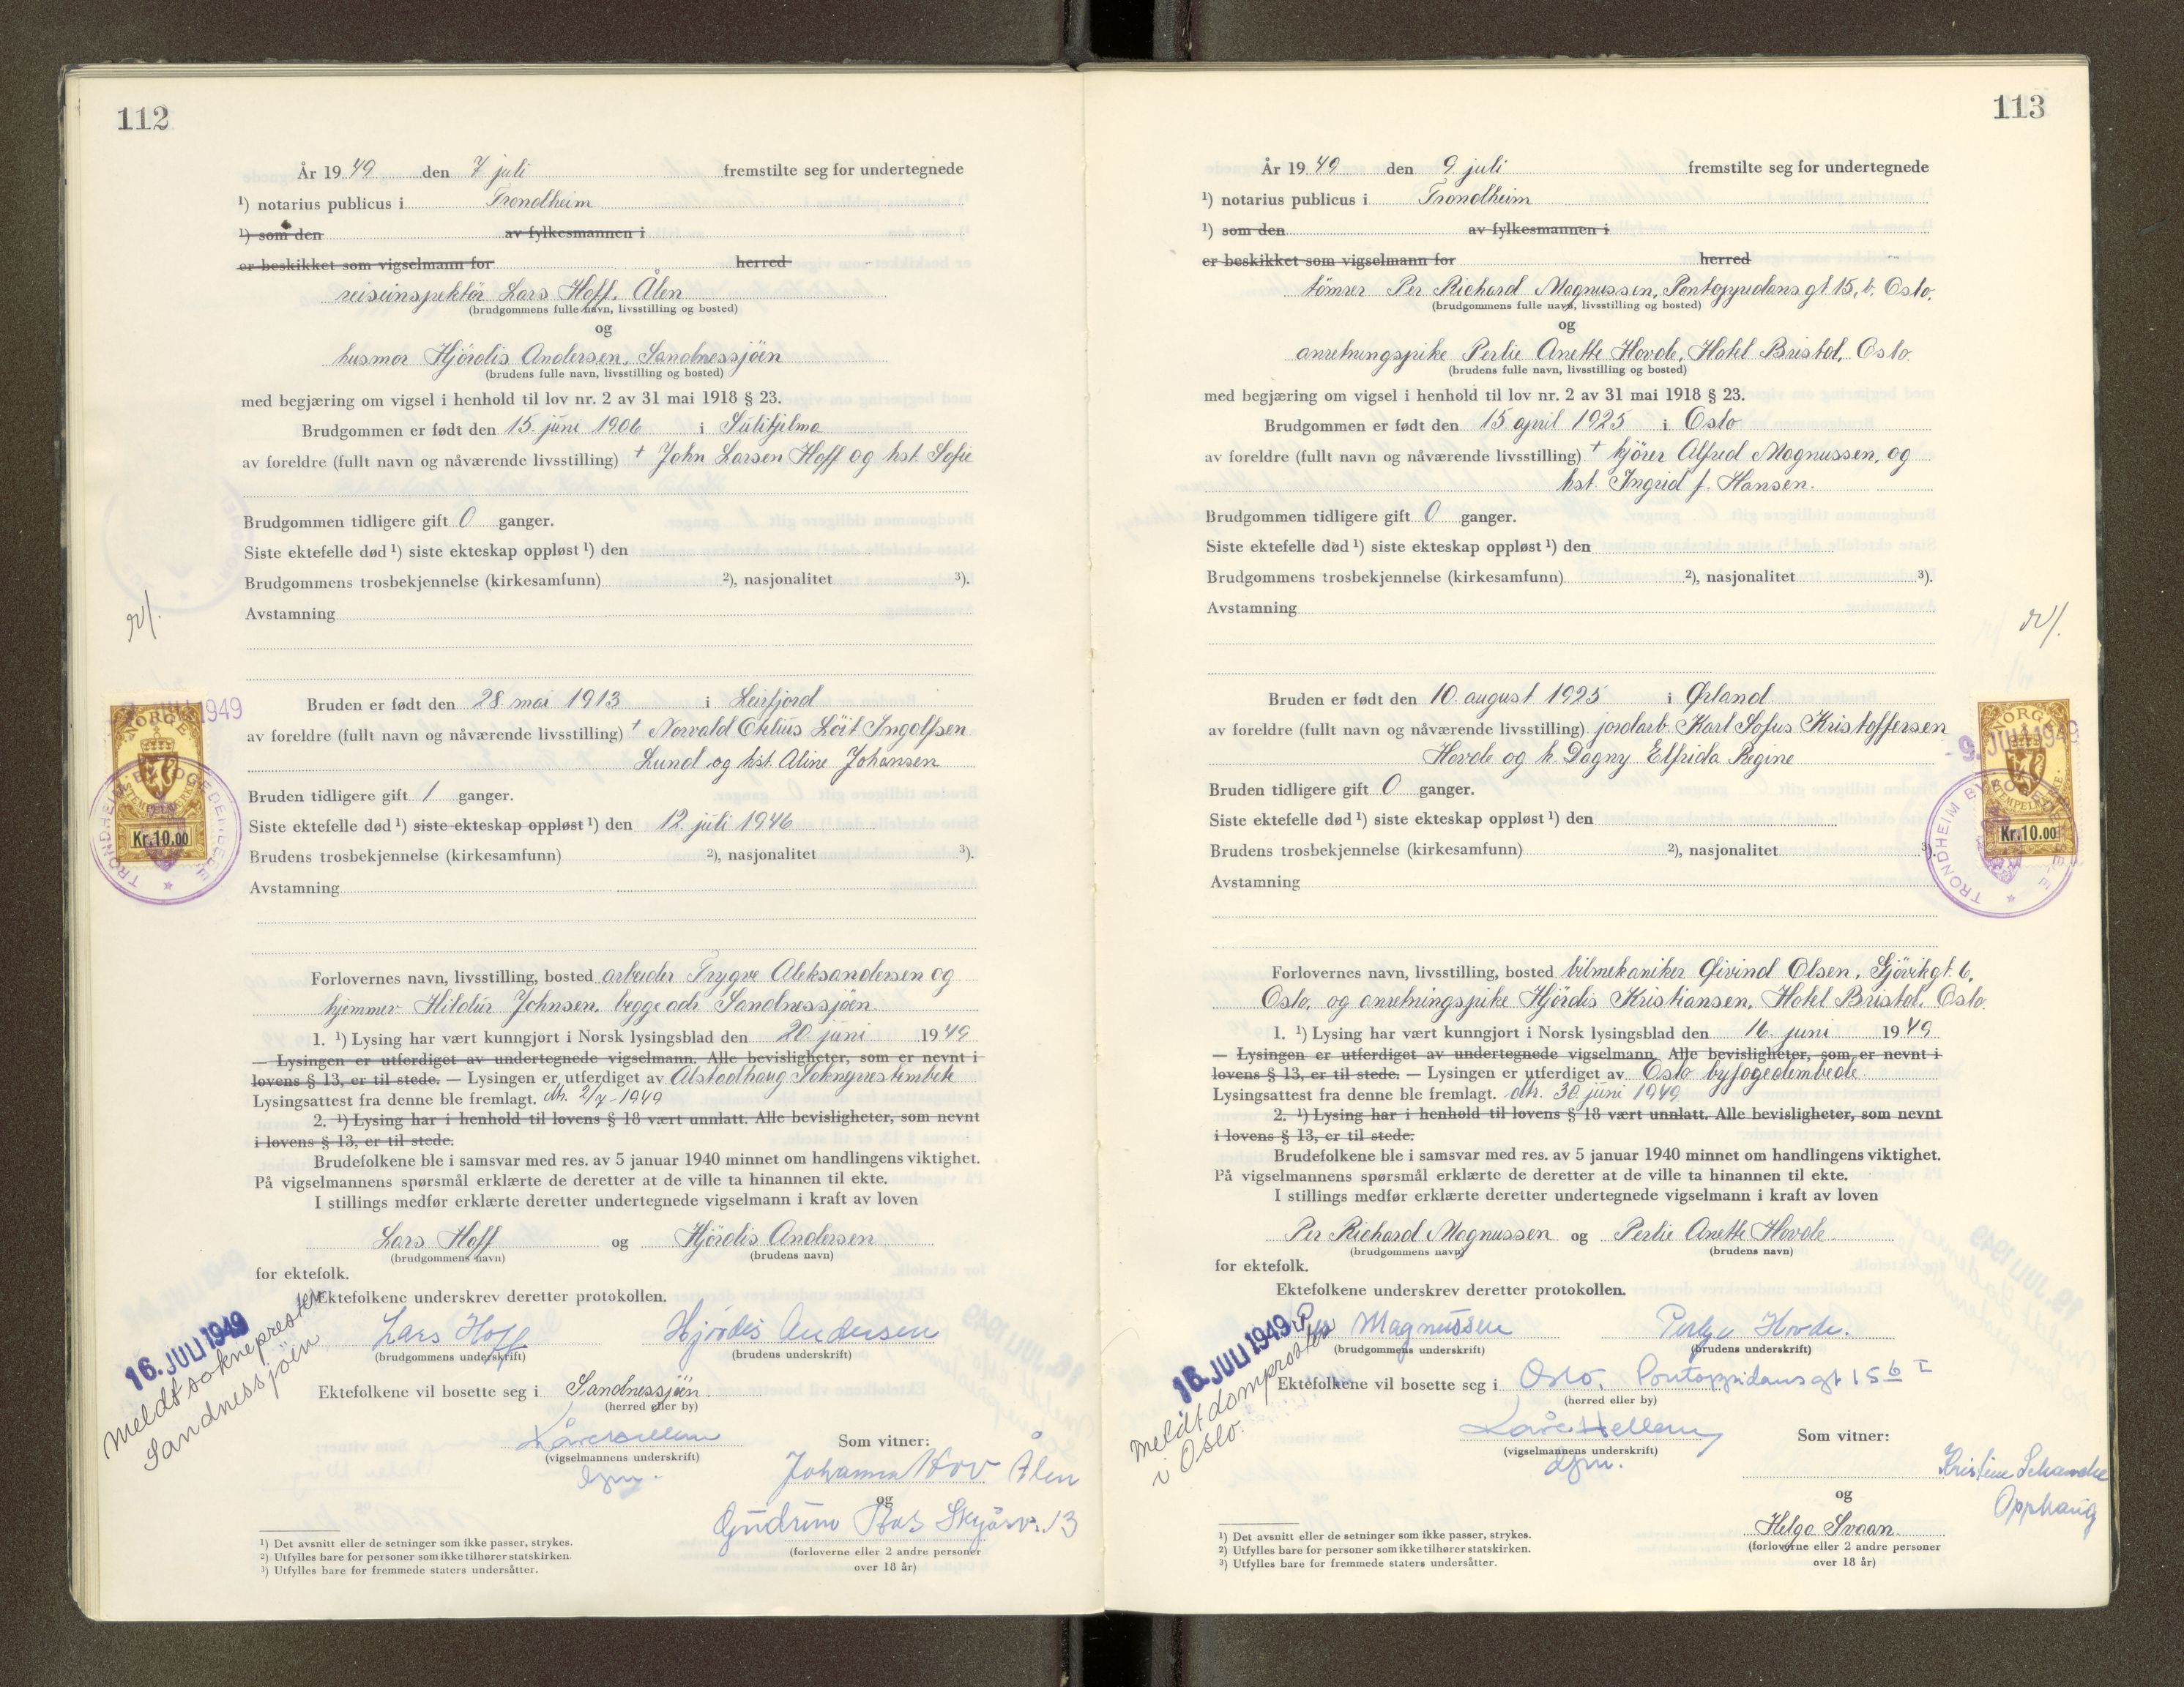 112
År 1949 den 7 juli fremstilte seg for undertegnede
¹) notarius publicus i Trondheim
¹) som den av fylkesmannen i
er beskikket som vigselmann for herred
reiseinspektör Lars Hoff, Ålen
(brudgommens fulle navn, livsstilling og bosted)
og
husmor Hjördis Andersen, Sandnessjöen
(brudens fulle navn, livsstilling og bosted)
med begjæring om vigsel i henhold til lov nr. 2 av 31 mai 1918 § 23.
Brudgommen er født den 15. juni 1906 i Sulitjelma
av foreldre (fullt navn og nåværende livsstilling) + John Larsen Hoff og hst. Sofie
Brudgommen tidligere gift 0 ganger.
Siste ektefelle død ¹) siste ekteskap oppløst ¹) den
Brudgommens trosbekjennelse (kirkesamfunn) ²), nasjonalitet ³).
Avstamning
Bruden er født den 28. mai 1913 i Leirfjord
av foreldre (fullt navn og nåværende livsstilling) + Norvald Löit Ingolfsen
Lund og hst. Aline Johansen
Bruden tidligere gift 1 ganger.
Siste ektefelle død ¹) siste ekteskap oppløst ¹) den 12. juli 1946
Brudens trosbekjennelse (kirkesamfunn) ²), nasjonalitet ³).
Avstamning
JULI 1949
NORGE
STEMPELMERKE
Kr. 10.00
TRONDHEIM BYFOGEDEMBEDE
Forlovernes navn, livsstilling, bosted arbeider Trygve Aleksandersen og
hjemmev. Hildur Johnsen, begge adr. Sandnessjöen
1. ¹) Lysing har vært kunngjort i Norsk lysingsblad den 20. juni 1949
— Lysingen er utferdiget av undertegnede vigselmann. Alle bevisligheter, som er nevnt i
lovens § 13, er til stede. — Lysingen er utferdiget av Alstadhaug Sokneprestembete
Lysingsattest fra denne ble fremlagt. dtr. 2/7-1949
2. ¹) Lysing har i henhold til lovens § 18 vært unnlatt. Alle bevisligheter, som nevnt
i lovens § 13, er til stede.
Brudefolkene ble i samsvar med res. av 5 januar 1940 minnet om handlingens viktighet.
På vigselmannens spørsmål erklærte de deretter at de ville ta hinannen til ekte.
I stillings medfør erklærte deretter undertegnede vigselmann i kraft av loven
Lars Hoff og Hjördis Andersen
(brudgommens navn) (brudens navn)
for ektefolk.
Ektefolkene underskrev deretter protokollen.
Lars Hoff Hjørdis Andersen
(brudgommens underskrift) (brudens underskrift)
16. JULI 1949
Meldt soknepresten
Sandnessjöen
Ektefolkene vil bosette seg i Sandnessjöen
(herred eller by)
Kåre Hellem
(vigselmannens underskrift)
dfm.
Som vitner:
Johanna Hov Ålen
og
Gudrun Skyåsv. 13
(forloverne eller 2 andre personer
over 18 år)
¹) Det avsnitt eller de setninger som ikke passer, strykes.
²) Utfylles bare for personer som ikke tilhører statskirken.
³) Utfylles bare for fremmede staters undersåtter.
113
År 1949 den 9 juli fremstilte seg for undertegnede
¹) notarius publicus i Trondheim
¹) som den av fylkesmannen i
er beskikket som vigselmann for herred
tömrer Per Richard Magnussen, Pontoppidans gt 15, b, Oslo.
(brudgommens fulle navn, livsstilling og bosted)
og
anretningspike Perlie Anette Hovde, Hotel Bristol, Oslo
(brudens fulle navn, livsstilling og bosted)
med begjæring om vigsel i henhold til lov nr. 2 av 31 mai 1918 § 23.
Brudgommen er født den 15 april 1925 i Oslo
av foreldre (fullt navn og nåværende livsstilling) + kjörer Alfred Magnussen, og
hst. Ingrid f. Hansen.
Brudgommen tidligere gift 0 ganger.
Siste ektefelle død ¹) siste ekteskap oppløst ¹) den
Brudgommens trosbekjennelse (kirkesamfunn) ²), nasjonalitet ³).
Avstamning
Bruden er født den 10. august 1925 i Ørland
av foreldre (fullt navn og nåværende livsstilling) jordarb. Karl Sofus Kristoffersen
Hovde og h. Dagny Elfrida Regine
Bruden tidligere gift 0 ganger.
Siste ektefelle død ¹) siste ekteskap oppløst ¹) den
Brudens trosbekjennelse (kirkesamfunn) ²), nasjonalitet ³).
Avstamning
9. JULI 1949
NORGE
STEMPELMERKE
Kr. 10.00
TRONDHEIM BYFOGEDEMBEDE
Forlovernes navn, livsstilling, bosted bilmekaniker Øivind Olsen, Gjövikgt. 6,
Oslo, og anretningspike Hjördis Kristiansen, Hotel Bristol, Oslo.
1. ¹) Lysing har vært kunngjort i Norsk lysingsblad den 16. juni 1949
— Lysingen er utferdiget av undertegnede vigselmann. Alle bevisligheter, som er nevnt i
lovens § 13, er til stede. — Lysingen er utferdiget av Oslo byfogedembede
Lysingsattest fra denne ble fremlagt. dtr. 30. juni 1949
2. ¹) Lysing har i henhold til lovens § 18 vært unnlatt. Alle bevisligheter, som nevnt
i lovens § 13, er til stede.
Brudefolkene ble i samsvar med res. av 5 januar 1940 minnet om handlingens viktighet.
På vigselmannens spørsmål erklærte de deretter at de ville ta hinannen til ekte.
I stillings medfør erklærte deretter undertegnede vigselmann i kraft av loven
Per Richard Magnussen og Perlie Anette Hovde
(brudgommens navn) (brudens navn)
for ektefolk.
Ektefolkene underskrev deretter protokollen.
Per Magnussen Hovde.
(brudgommens underskrift) (brudens underskrift)
16. JULI 1949
Meldt domprosten
i Oslo.
Ektefolkene vil bosette seg i Oslo, Pontoppidansgt 15 b I
(herred eller by)
Kåre Hellem
(vigselmannens underskrift)
dfm.
Som vitner:
Kristine Schancke
Opphaug
og
Helga Svaan.
(forloverne eller 2 andre personer
over 18 år)
¹) Det avsnitt eller de setninger som ikke passer, strykes.
²) Utfylles bare for personer som ikke tilhører statskirken.
³) Utfylles bare for fremmede staters undersåtter.